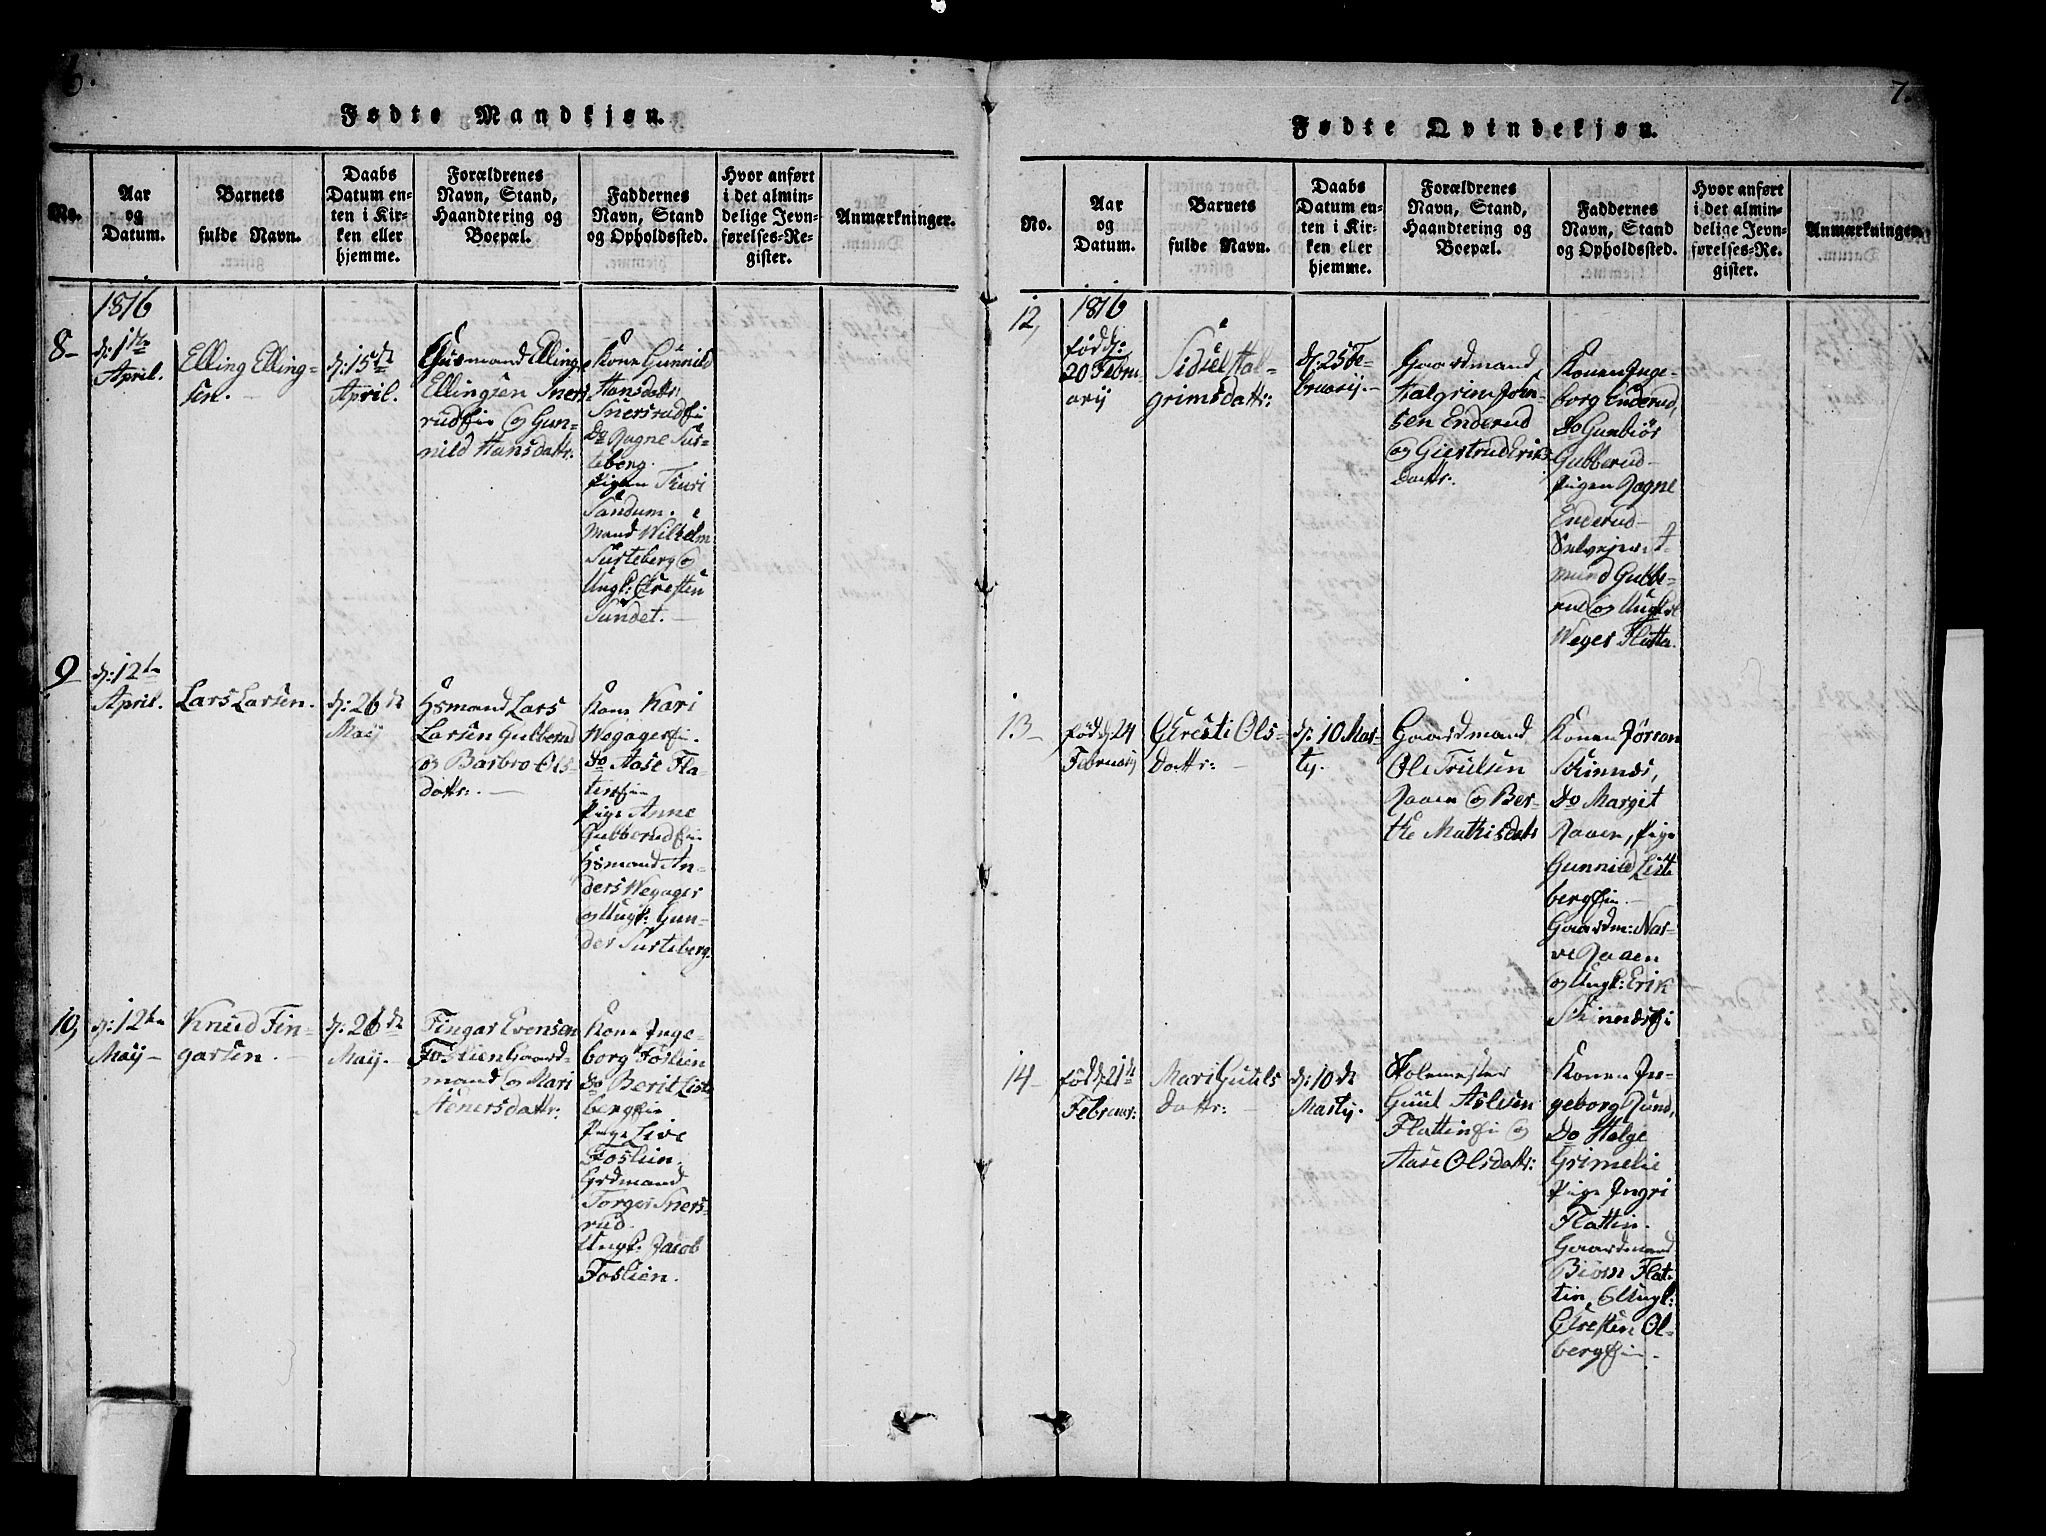 6.
Fødte Mandkjøn.
No.
Aar
og
Datum.
Barnets
fulde Navn.
Daabs
Datum en-
ten i Kir-
ken eller
hjemme.
Forældrenes
Navn, Stand,
Haandtering og
Boepæl.
Faddernes
Navn, Stand
og Opholdssted.
Hvor anført
i det almin-
delige Jevn-
førelses-Re-
gister.
Anmærkninger.
1816
8-
d: 1ste
April.
Elling Elling-
sen.
d: 15de
April.
Huusmand Elling
Ellingsen Sners
rud og Gun-
nild Hansdattr:
Kone Gunnild
Hansdattr,
Snersrud
Do Ragne Sur-
teberg.
Pigen Thuri
Sandum.
Mand Wilhelm
Surteberg og
Ungk: Christen
Sundet.
9
d: 12te
April.
Lars Larsen.
d: 26de
Maij
Hsmand Lars
Larsen Gubberud
og Barbro Ols-
dattr:
Kone Kari
Wegager
Do Aase Fla-
tin
Pige Anne
Gubberud
Hsmand An-
ders Wegager
og Ungk: Gun-
der Surteberg.
10,
d: 12te
Maij
Knud Fin-
garsen.
d: 26de
Maij.
Fingar Evensen
Foslien Gaard-
mand og Mari
Asnersdattr:
Kone Inge-
borg Foslien
Do Berit Liste
berg
Pige Live
Foslien.
Grdmand
Torger Sners-
rud.
Ungk: Jacob
Foslien.
7.
Fødte Qvindekjøn.
No.
Aar
og
Datum.
Barnets
fulde Navn.
Daabs
Datum en-
ten i Kir-
ken eller
hjemme.
Forældrenes
Navn, Stand,
Haandtering og
Boepæl.
Faddernes
Navn, Stand
og Opholdssted.
Hvor anført
i det almin-
delige Jevn-
førelses-Re-
gister.
Anmærkninger.
12,
1816
fød d:
20 Febru
arij
Sidsel Hal-
grimsdattr:
d: 25 Fe-
bruarij.
Gaardmand
Halgrim John-
sen Enderud
og Giertrud Eriks
dattr:
Konen Inge-
borg Enderud,
Do Gunbiør
Gubberud
Pigen Ragne
Enderud-
Selvejer
mund Gubbe-
rud og Ungkrl
Weger Flatta.
13-
fød d: 24
Februarij
Christi Ols-
dattr:
d: 10 Mar-
tij.
Gaardmand
Ole Trulsen
Raaen og Ber-
the Mathisdatr
Konen Jøran
Skinnes,
Do Margit
Raaen, Pige
Gunnild Liste
berg
Gaardm: Nar-
ve Raaen
og Ungk: Erik
Skinnes
14-
fød d: 21te
Februar:
Mari Guuls
dattr:
d: 10de
Martij.
Skolemester
Guul Aslesen
Flattin og
Aase Olsdattr:
Konen In-
geborg Rund,
Do Helge
Grimelie
Pige Ingri
Flattin.
Gaardmand
Biørn Flat-
tin, og Ungk:
Christen Ol-
berg